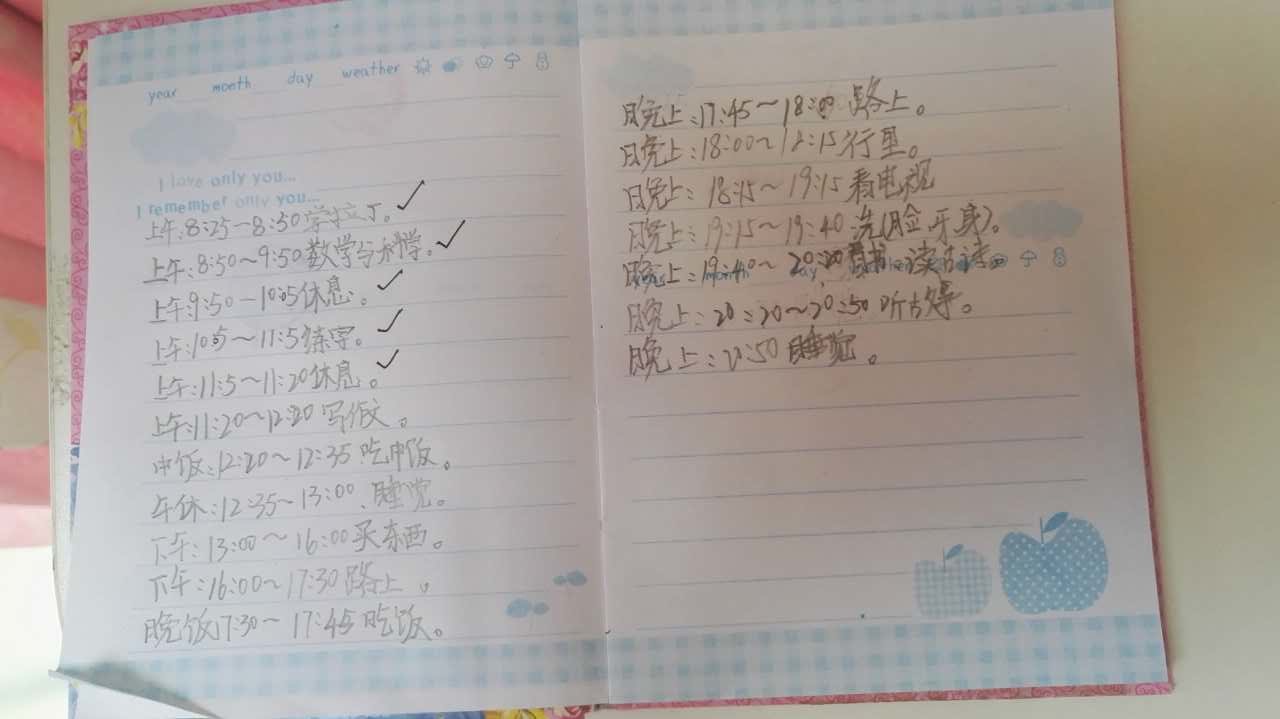 year month day weather
I love only you...
I remember only you...
上午:8:25~8:50学拉丁。
上午:8:50~9:50数学与科学。
上午:9:50-10:05休息。
上午:10:5~11:5练字。
上午:11:5~11:20休息。
上午:11:20~12:20写作文。
中饭:12:20~12:35吃中饭。
午休:12:35~13:00、睡觉。
下午:13:00~16:00买东西。
下午:16:00~17:30路上。
晚饭17:30~17:45吃饭。
晚上:17:45~18:00路上。
晚上:18:00~18:15行里。
晚上:18:15~19:15看电视
晚上:19:15~19:40洗(脸、牙、身)。
晚上:19:40~20:20看书、读古诗。
晚上:20:20~20:50听故事。
晚上:20:50睡觉。